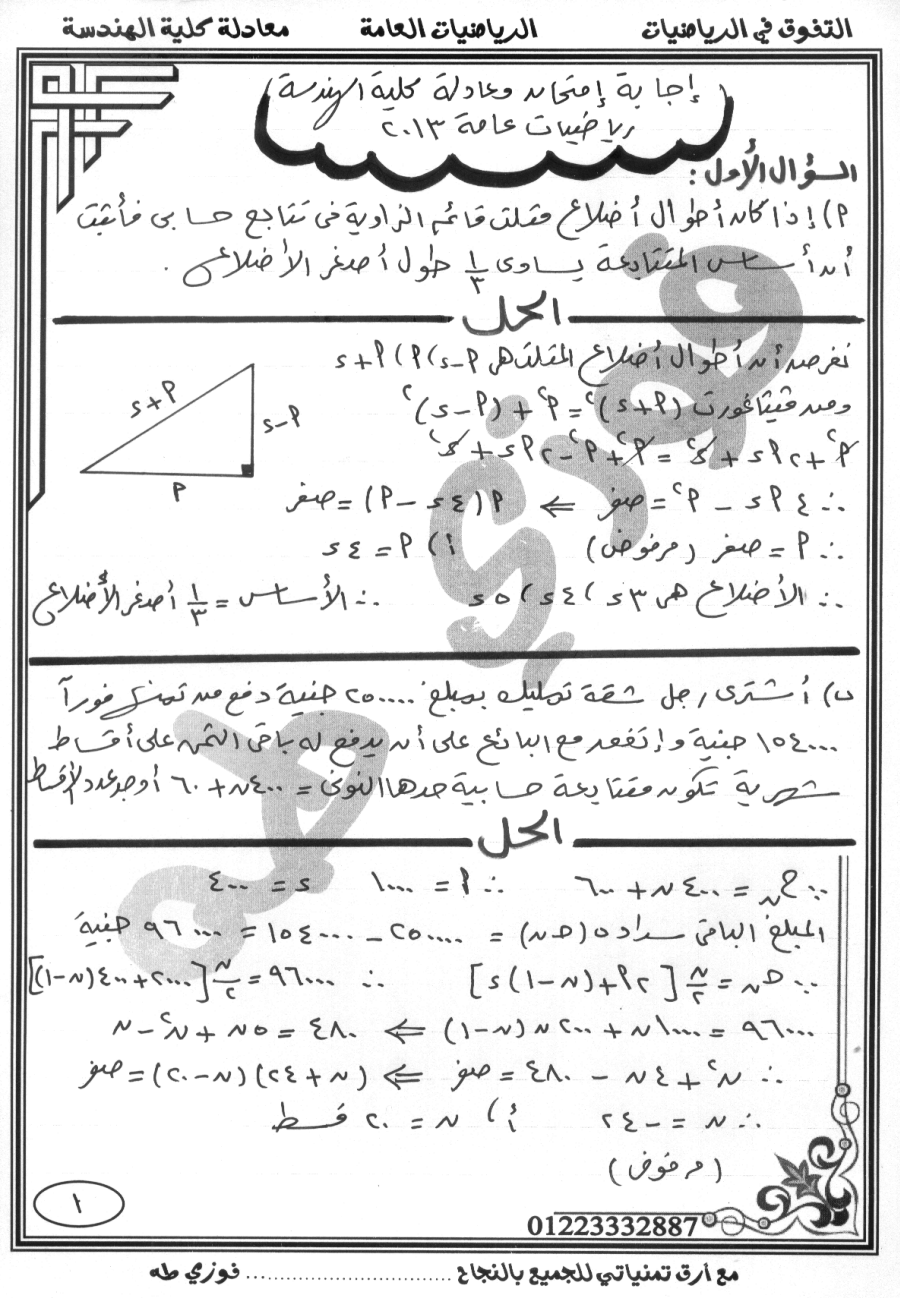 التفوق في الرياضيات الرياضيات العامة معادلة كلية الهندسة
إجابة إمتحان معادلة كلية الهندسة
رياضيات عامة ٢٠١٣
السؤال الأول :
٩) إذا كان أطوال أضلاع مثلث قائم الزاوية في تتابع حسابي فأثبت
أن أساس المتتابعة يساوى ١/٣ طول أصغر الأضلاع .
الحل
نفرض أن أطوال أضلاع المثلث هي ٩-د ، ٩ ، ٩+د
ومن فيثاغورث (٩+د)² = ٩² + (٩-د)²
٩² + ٢٩د + د² = ٩² + ٩² - ٢٩د + د²
∴ ٤٩د - ٩² = صفر ⇐ ٩(٤د - ٩) = صفر
∴ ٩ = صفر (مرفوض) أ، ٩ = ٤د
∴ الأضلاع هي ٣د ، ٤د ، ٥د ∴ الأساس = ١/٣ أصغر الأضلاع
٩+د
د-٩
٩
ب) أشترى رجل شقة تمليك بمبلغ ٢٥٠٠٠٠ جنية دفع من ثمنها فوراً
١٥٤٠٠٠ جنية وإتفق مع البائع على أن يدفع له باقى الثمن على أقساط
شهرية تكون متتابعة حسابية حدها النونى = ٤٠٠ن + ٦٠٠ أوجد عدد الأقساط
الحل
∵ ح ن = ٤٠٠ن + ٦٠٠ ∴ ٩ = ١٠٠٠ د = ٤٠٠
المبلغ الباقى سداده (حـن) = ٢٥٠٠٠٠ - ١٥٤٠٠٠ = ٩٦٠٠٠ جنية
∵ حـن = ن/٢ [٢٩ + (ن-١)د] ∴ ٩٦٠٠٠ = ن/٢ [٢٠٠٠ + ٤٠٠(ن-١)]
٩٦٠٠٠ = ١٠٠٠ن + ٢٠٠ن(ن-١) ⇐ ٤٨٠ = ٥ن + ن² - ن
∴ ن² + ٤ن - ٤٨٠ = صفر ⇐ (ن + ٢٤)(ن - ٢٠) = صفر
∴ ن = -٢٤ أ، ن = ٢٠ قسط
(مرفوض)
١
01223332887
مع أرق تمنياتي للجميع بالنجاح .......................... فوزي طه
فوزي طه